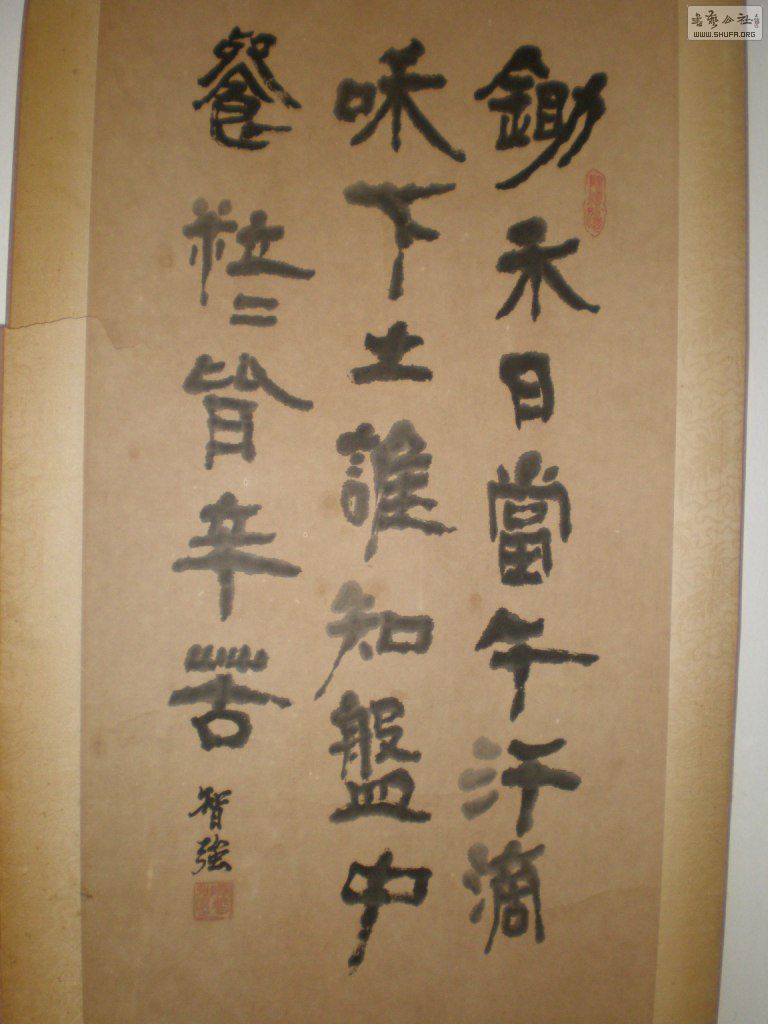 鋤禾日當午汗滴
咊下土誰知盤中
餐粒〻皆辛苦
智強
書藝公社
WWW.SHUFA.ORG